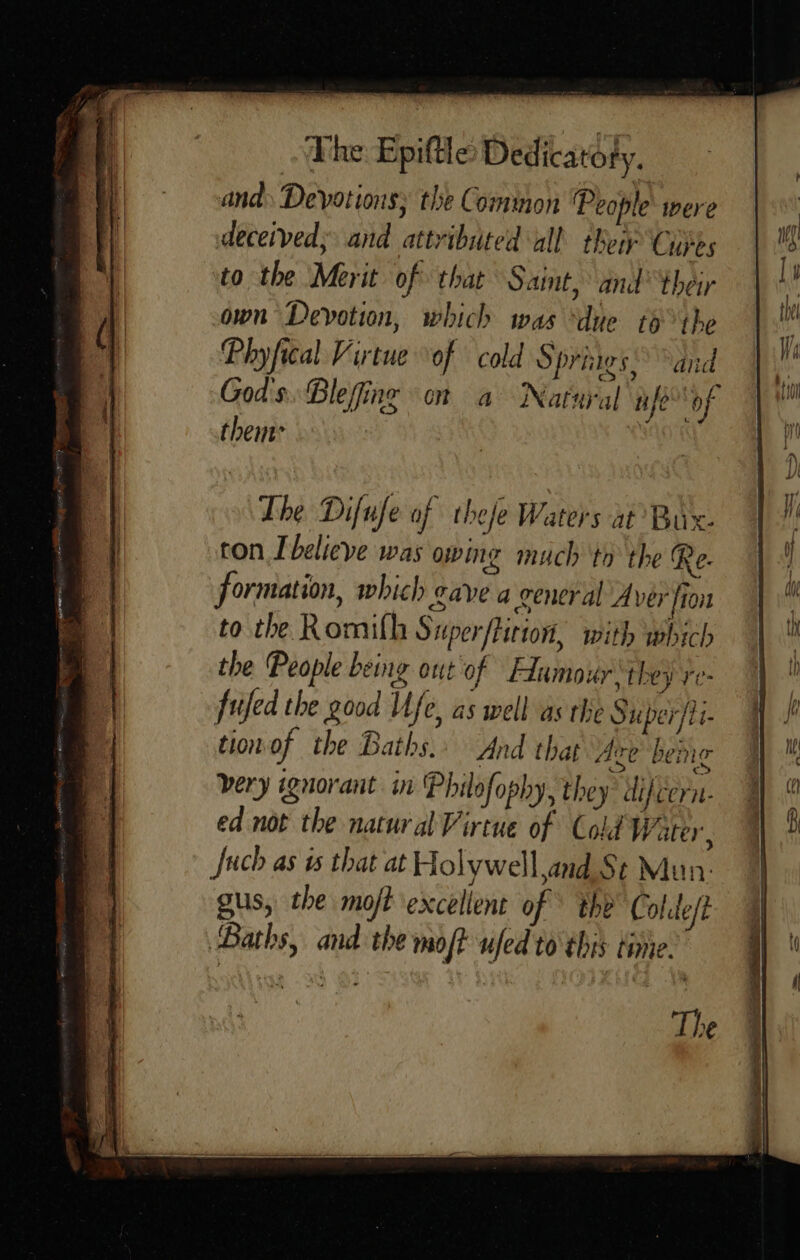 The Epiſtle Dedicatory.
and Devotions; the Common People were
deceived, and attributed all their Cures
to the Merit of that Saint, and their
own Devotion, which was due to the
Phyſical Virtue of cold Springs, and
God's Bleſſing on a Natural uſe of
them.
The Diſuſe of theſe Waters at Bux-
ton I believe was owing much to the Re-
formation, which gave a general Averſion
to the Romiſh Superſtition, with which
the People being out of Humour, they re-
fuſed the good Uſe, as well as the Superſti-
tion of the Baths. And that Age being
very ignorant in Philoſophy, they diſcern-
ed not the natural Virtue of Cold Water,
ſuch as is that at Holywell, and St Mun-
gus, the moſt excellent of the Coldeſt
Baths, and the moſt uſed to this time.
The